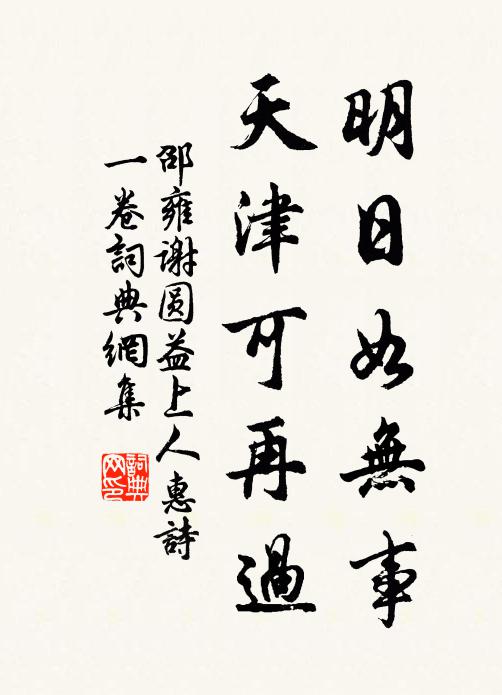 明日如無事
天津可再過
邵雍謝圓益上人惠詩
一卷詞典網集
詞典網印